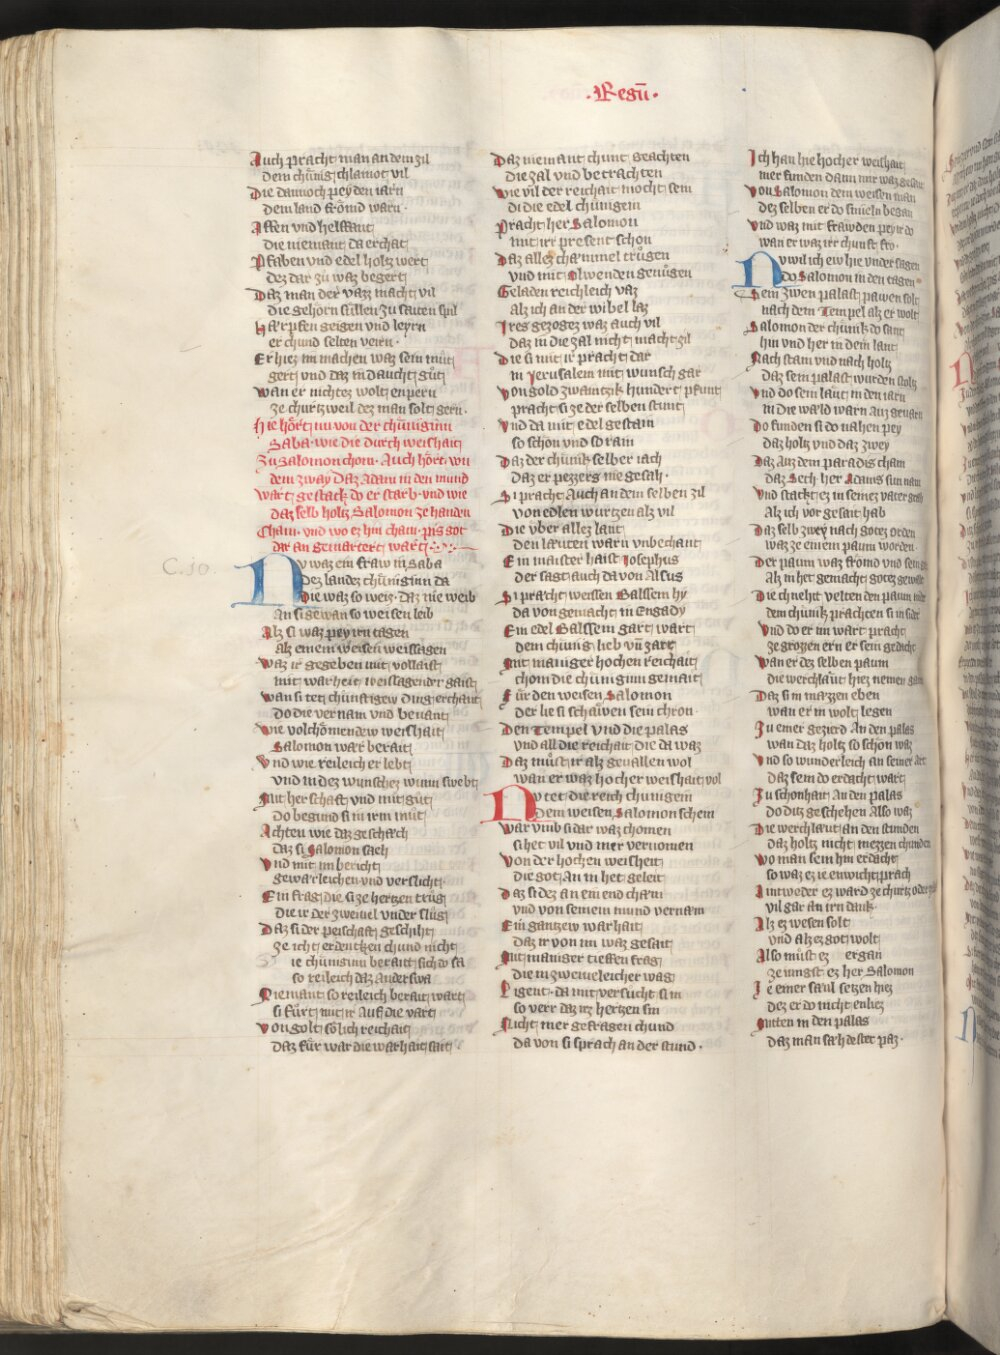 ·Regū·
Auch pracht man an dem zil
dem chünig chlainot vil
Die dannoch pey den iarn
dem land frömd warn·
Affen vnd helffant
die niemant da erchant
Pfaben vnd edel holtz wert
dez dar zů waz begert
Daz man der vazz macht vil
die gehorn süllen zu saiten spil
Härpfen geigen vnd leyrn
er chund selten veirn·
Er hiez im machen waz sein můt
gert vnd daz in daucht gůt
wan er nichtez wolt enpern
ze churtzweil dez man solt gern·
Hie hört nu von der chüniginn
Saba· wie die durch weishait
Zu Salomon chom· Auch hört· von
dem zway daz Adam in den mund
wart gestackt do er starb· vnd wie
daz selb holtz Salomon ze handen
Cham· vnd wo ez hin cham· pis got
dar an gemartert wart
C. 10.
Nv waz ein fraw in Saba
dez landez chüniginn da
Die waz so weis· daz nie weib
an si gewan so weisen leib
Alz si waz pey irn tagen
alz einem weisen weissagen
waz ir gegeben mit vollaist
mit warheit weissagender gaist
wan si tet chünftigew ding erchant
do die vernam vnd bevant
wie volchömendew weishait
Salomon wär berait
Vnd wie reileich er lebt
vnd in dez wunschez wunn swebt
Mit herschaft vnd mit gůt
do begund si in irm můt
Achten wie daz geschäch
daz si Salomon säch
Vnd mit im bericht
gewärleichen vnd verslicht·
Ein frag die si ze hertzen trůg
die ir der zweiuel vnder slůg
Daz si der peischaft geschiht
ze icht erdentken chund nicht
ie chüniginn berait sich do sa
so reileich daz anderswa
Niemant so reileich berait wart
si fůrt mit ir Auf die vart
Von golt sölich reichait
daz für war die warhait sait·
Daz niemant chunt geachten
die zal vnd betrachten
wie vil der reichait mocht sein
di die edel chünigein
Pracht her Salomon
mit irr present schon
Daz allez chämmel trůgen
vnd mit Olwenden genůgen
Geladen reichleich vaz
alz ich an der wibel laz
Ires gezogez waz auch vil
daz in die zal nicht macht zil
Die si mit ir pracht dar
in Jerusalem mit wunsch gar
Von gold zwaintzik hundert pfunt
pracht si ze der selben stunt
Vnd da mit edel gestain
so schön vnd so rain
Daz der chünik selber iach
daz er pezzers nie gesah·
Si pracht Auch an dem selben zil
von edlen wurtzen alz vil
Die vber allez lant
den läuten warn vnbechant
Ein maister haist Josephus
der sagt auch da von Alsus
Si pracht weissen Balsem hy
da von gemacht in Engady
Ein edel Balssem gart wart
dem chünig lieb vñ zart
Mit maniger hochen reichait
chom die chünigin gemait
Für den weisen Salomon
der lie si schäwen sein chron·
Den Tempel vnd die palas
vnd all die reichait die da waz
Daz můst ir alz geuallen wol
wan er waz hocher weishait vol
Nv tet die reich chunigein
dem weisen Salomon schein
War vmb si dar waz chomen
si het vil vnd mer vernomen
Von der hochen weisheit
die got An in het geleit
Daz si dez an ein end cham
vnd von seinem mund vernam
Ein gantzew warhait
daz ir von im waz gesait
Mit maniger tieffen frag
die in zweiueleicher wag
Ligent· da mit versucht si in
so verr daz irz hertzen sin
Nicht mer gefragen chund
da von si sprach an der stund·
Ich han hie hocher weishait
mer funden dann mir waz gesait
von Salomon dem weisen man
dez selben er do smieln began
Vnd waz mit fräwden pey ir do
wan er waz irr chunft fro·
Nv wil ich ew hie vnder sagen
do Salomon in den tagen
Sein zwen palast pawen solt
nach dem Tempel alz er wolt
Salomon der chünik do sant
hin vnd her in dem lant
Nach stain vnd nach holtz
daz sein palast wurden stoltz
Vnd do sein läut in den iarn
in die wäld warn auz geuarn
Do funden si do nahen pey
daz holtz vnd daz zwey
Daz Auz dem paradis cham
daz Seth her Adams sun nam
Vnd stackt ez in seinez vater grab
Alz ich vor gesait hab
Daz selb zwey nach gotez orden
waz ze einem paum worden
Der paum waz frömd vnd sein ge
Alz in het gemacht gotez gewalt
Die chneht velten den paum nider
dem chünik prachten si in sider
Vnd do er im wart pracht
ze grozzen ern er sein gedacht
wan er dez selben paum
die werchläut hiez nemen gaum
Daz si in mäzzen eben
wan er in wolt legen
Zu einer gezierd An den palas
wan daz holtz so schon waz
Vnd so wunderleich an seiner art
daz sein do erdacht wart
Zu schonhait An den palas
do ditz geschehen Also waz
Die werchläut an den stunden
daz holtz nicht mezzen chunden
wo man sein hin erdacht
so waz ez ie enwicht pracht
Aintweder ez ward ze churtz oder
vil gar an irn dank·
Alz ez wesen solt
vnd alz ez got wolt
Also můst ez ergan
ze iungst ez her Salomon
Ze einer säul setzen hiez
dez er do nicht enliez
Mitten in den palas
daz man säh dester paz·